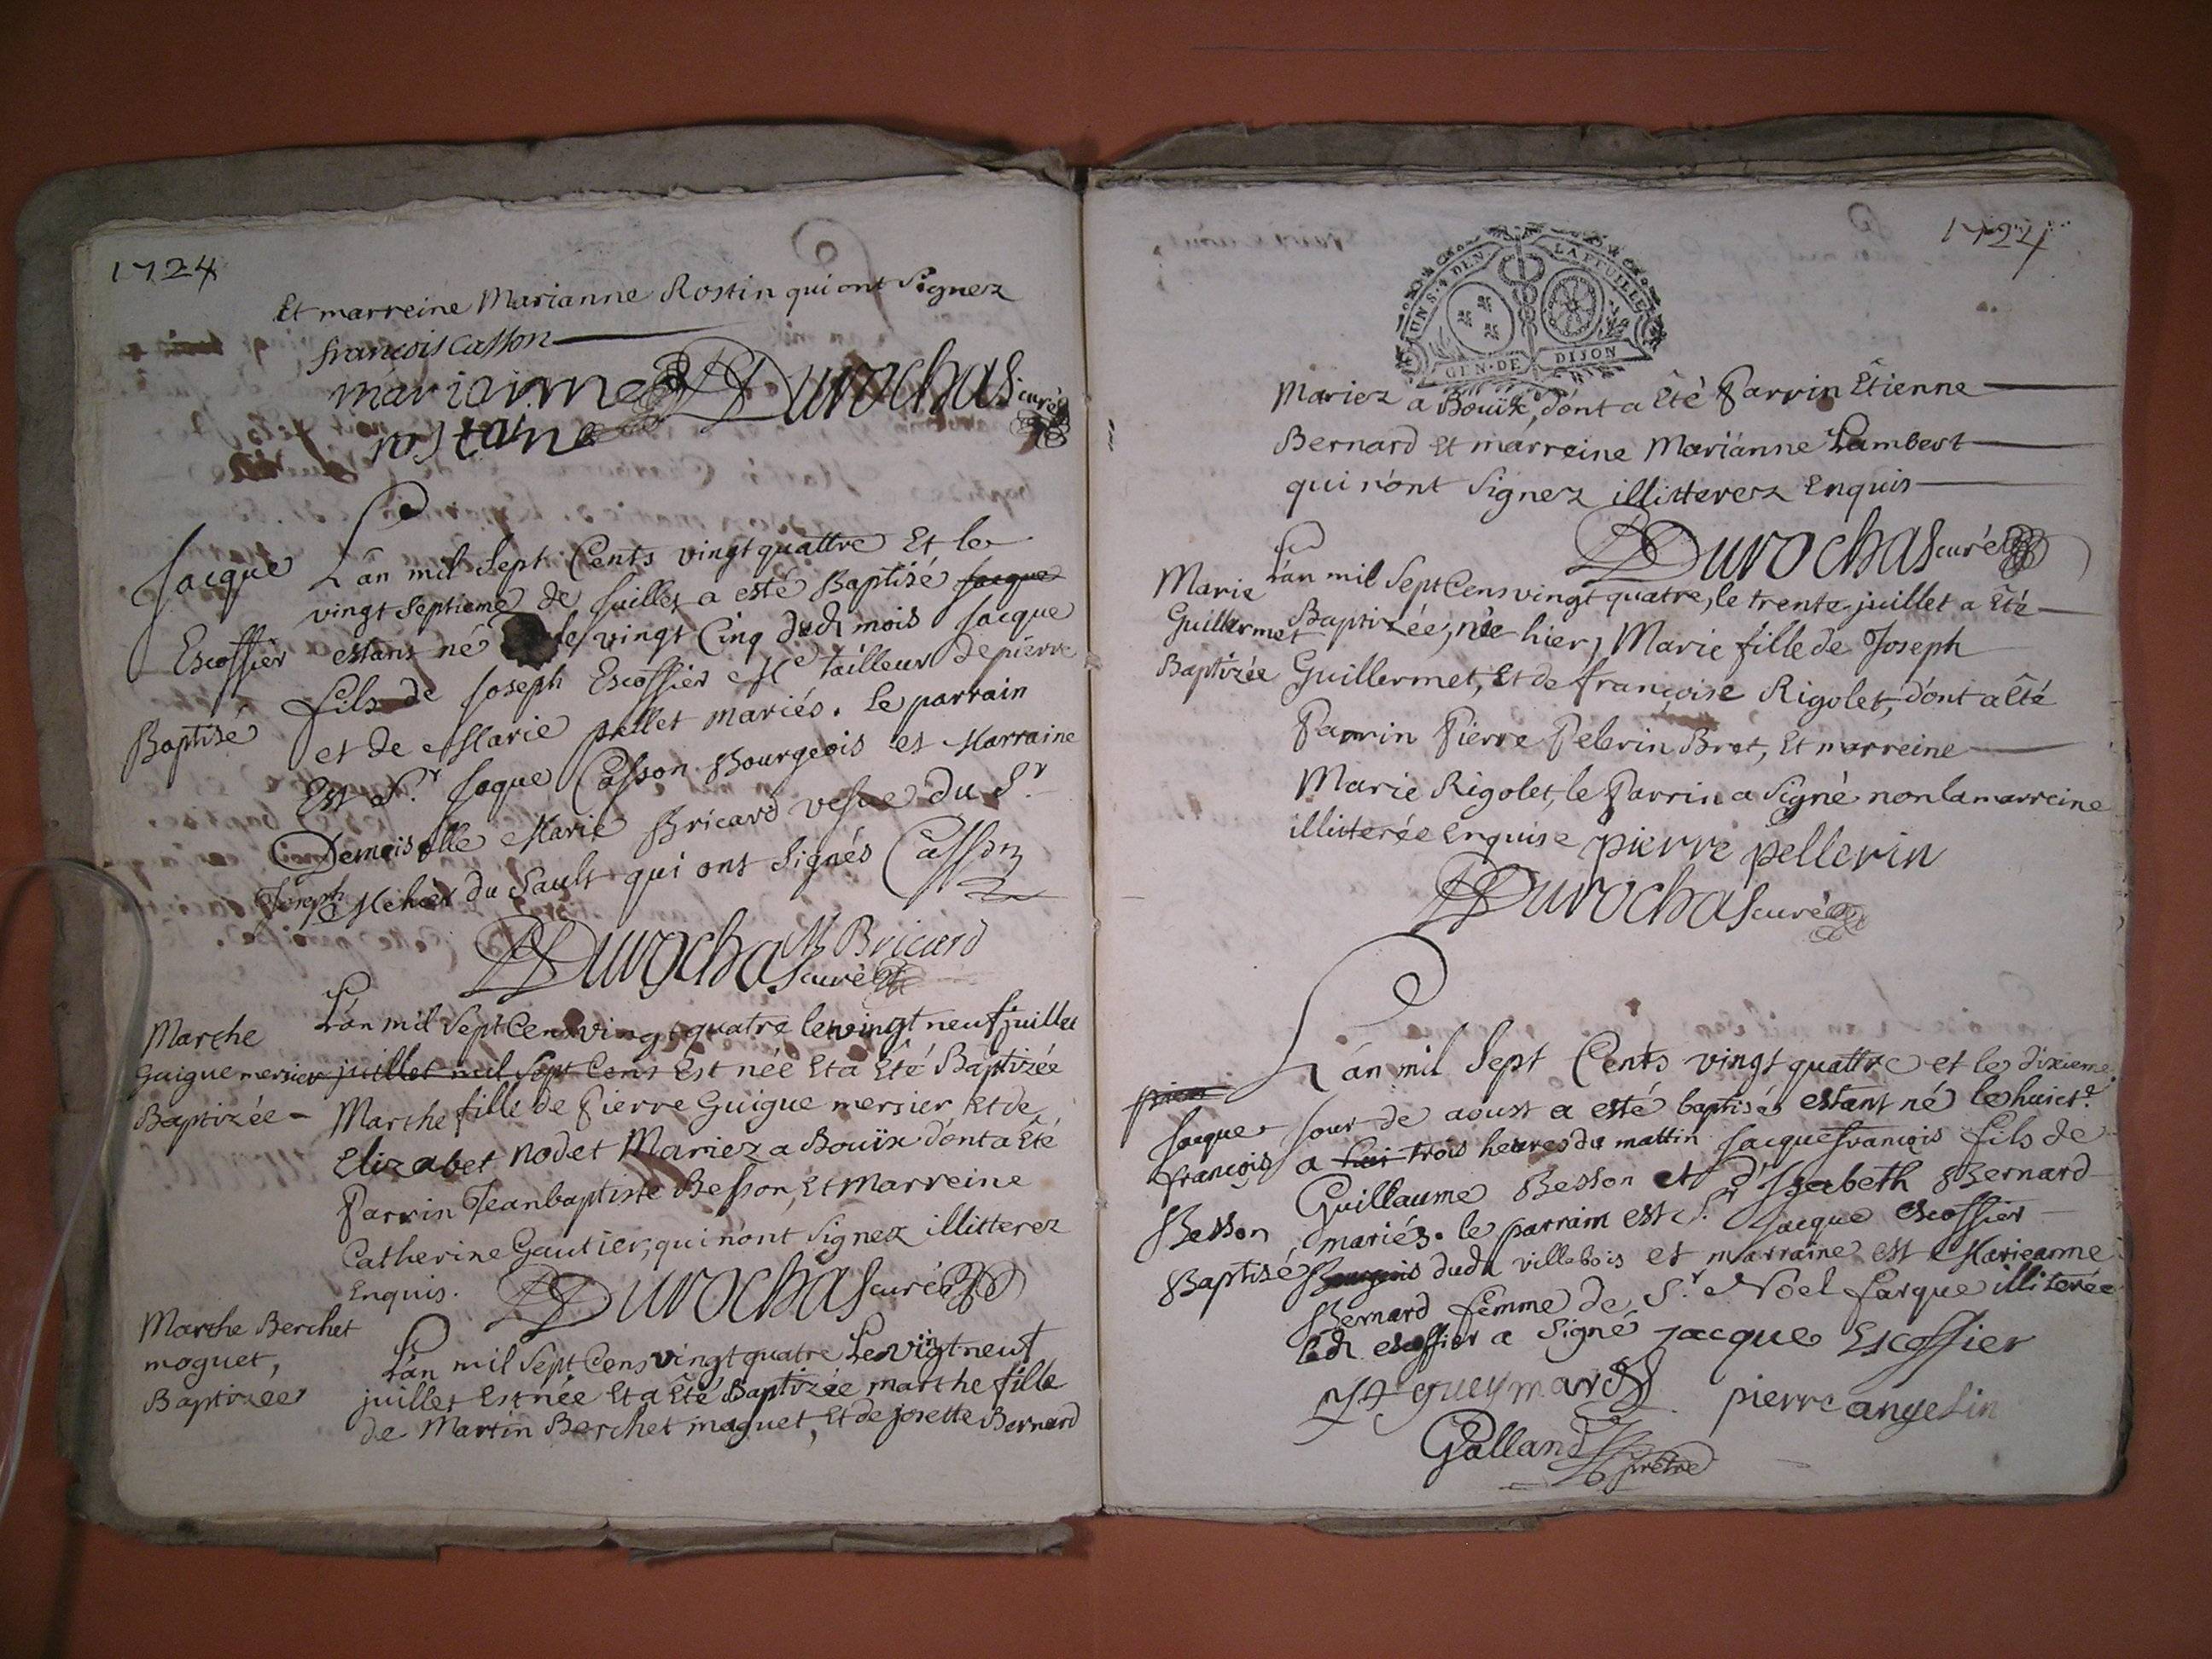 1724
Et marreine Marianne Rostin qui ont Signez
françois Casson
marianne Durochas curé
rostaine
Jacque
Escoffier
Baptisé
L'an mil Sept Cents vingt quattre Et le
vingt Septieme de Juillet a esté Baptisé Jacque
estant né le vingt Cinq dudt mois Jacque
fils de Joseph Escoffier Me tailleur de pierre
et de Marie pellet mariés. Le parrain
Est Sr. Jaque Casson Bourgeois et Marraine
Demoiselle Marie Bricard vefve du Sr
Joseph Mehier du Sault qui ont Signés Casson
M Bricard
Durochas curé
Marthe
Guigue mersier
Baptizée
L'an mil Sept Cens vingt quatre le vingt neuf juillet
juillet mil Sept Cens Est née Et a Eté Baptizée
Marthe fille de Pierre Guigue mersier Et de
Elizabet nodet Mariez a Bouïx dont a Eté
Parrin Jean baptiste Besson, Et Marreine
Catherine Gautier, qui n'ont Signez illitterez
Enquis. Durochas curé
Marthe Berchet
moguet,
Baptizée
L'an mil Sept Cens vingt quatre Le vingt neuf
juillet Est née Et a Eté Baptizée marthe fille
de Martin Berchet moguet, Et de josette Bernard
1724
UN S. 4 DEN LA FEUILLE
GEN. DE DIJON
Mariez a Bouïx, dont a Eté Parrin Etienne
Bernard Et marreine Marianne Lambert
qui n'ont Signez illitterez Enquis
Durochas curé
Marie
Guillermet
Baptizée
L'an mil Sept Cens vingt quatre, le trente juillet a Eté
Baptizée, née hier, Marie fille de Joseph
Guillermet, Et de françoise Rigolet, dont a Eté
Parrin Pierre Pelerin Brot, Et marreine
Marie Rigolet, le Parrin a Signé non la marreine
illitterée Enquise pierre pellerin
Durochas curé
Jacque
françois
Besson
Baptisé
L'an mil Sept Cents vingt quattre et le dixieme
Jour de aoust a esté baptisé estant né le huict.e
a trois heures du mattin Jacque françois fils de
Guillaume Besson et d'Isabeth Bernard
mariés. le parrain est Sr. Jacque escoffier
Bourgeois dudt villebois et marraine est Marieanne
Bernard femme de Sr. Noel farque illiterée
ledt escoffier a Signé jacque Escoffier
gueymard pierre angelin
Galland
prêtre